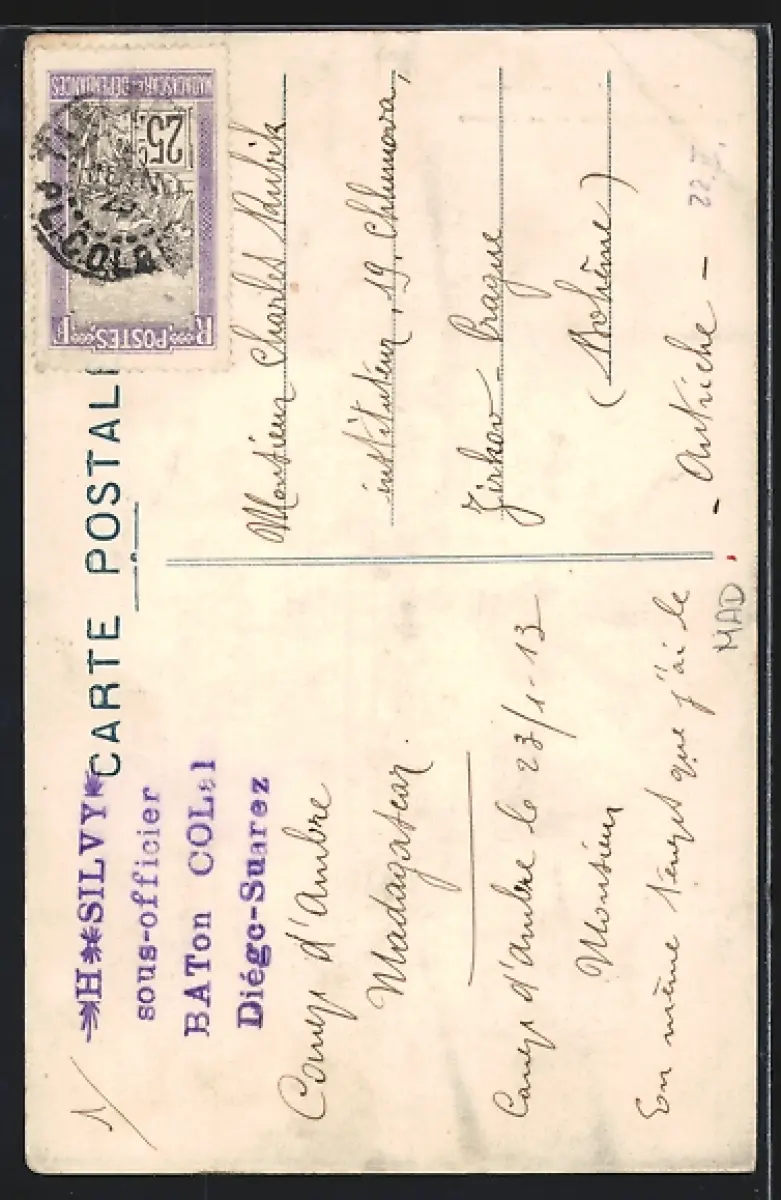 1/
H SILVY
sous-officier
BATon COLal
Diégo-Suarez
CARTE POSTAL
MADAGASCAR ET DÉPENDANCES
25 c
POSTES
R F
COLON
Camp d'Ambre
Madagascar.
Camp d'Ambre le 23/1-13
Monsieur
En même temps que j'ai le
Monsieur Charles Kubik
instituteur, 19, Chlumova,
Zizkov - Prague
(Bohême)
- Autriche -
22 V.
MAD